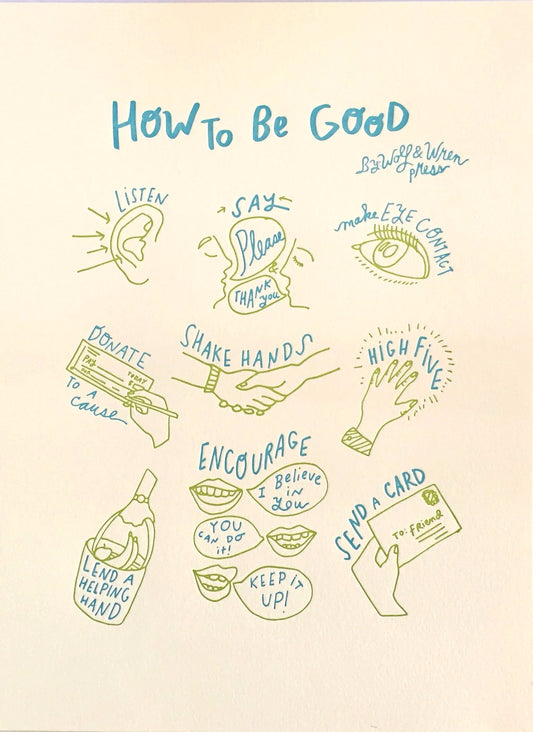 HOW TO BE GOOD
By Wolf & Wren
press
LISTEN
SAY
Please
&
THANK
you
make EYE CONTACT
DONATE
PAY
TODAY
$
TO A
cause
SHAKE HANDS
HIGH FIVE
LEND A
HELPING
HAND
ENCOURAGE
I Believe
in
You
YOU
CAN DO
it!
KEEP IT
UP!
SEND A CARD
TO: FRIEND